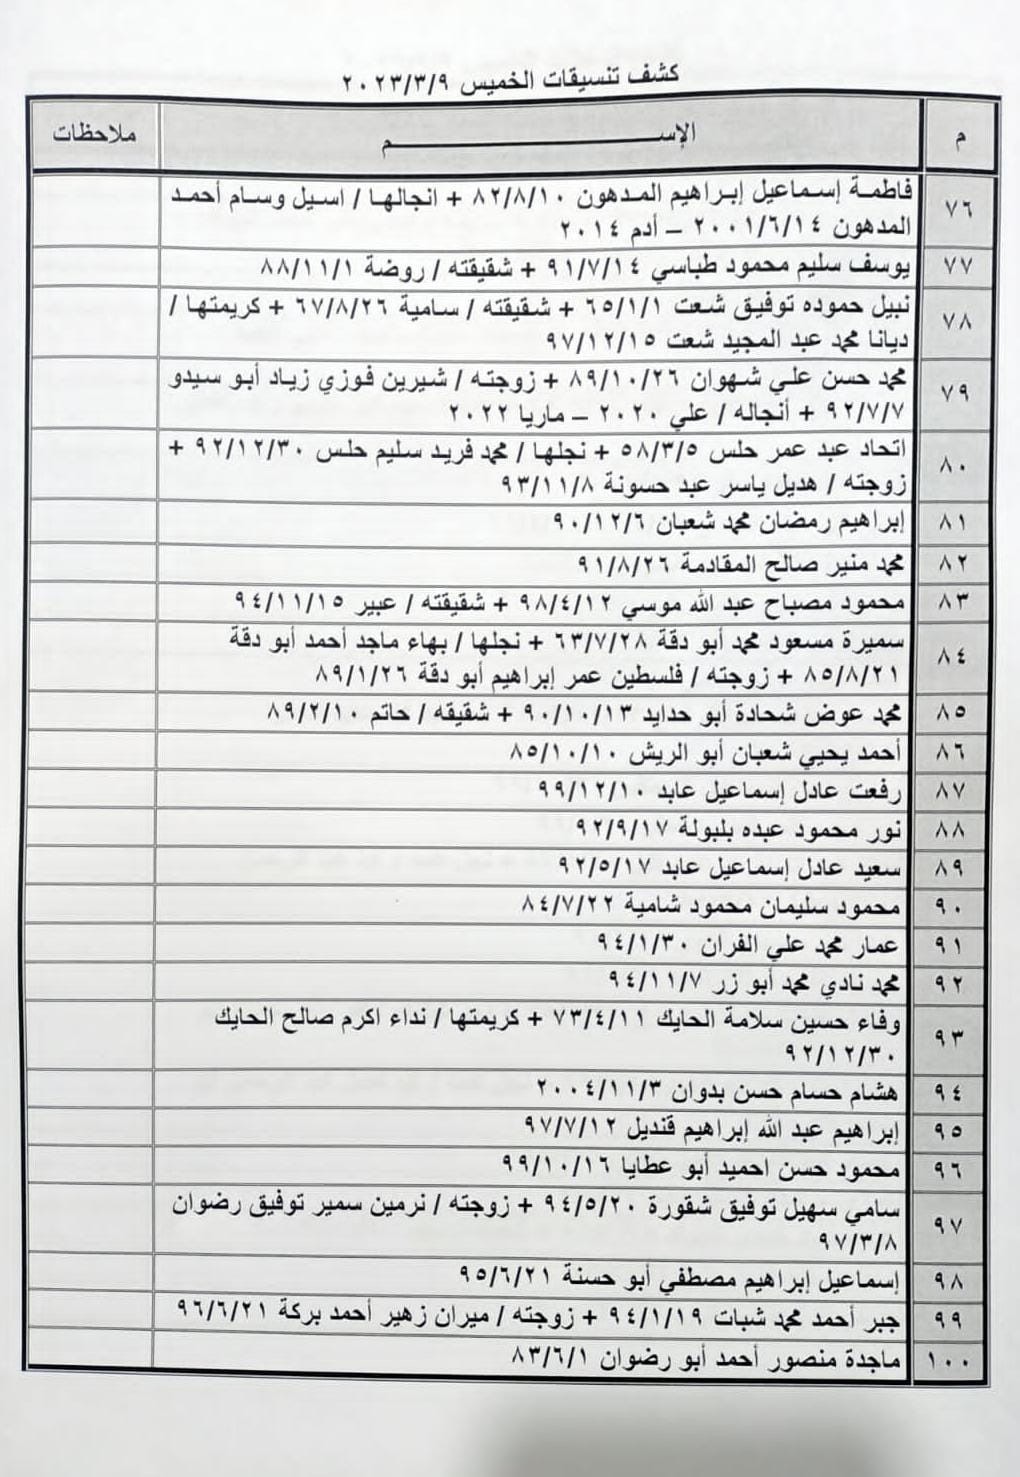 كشف تنسيقات الخميس ٢٠٢٣/٣/٩
م الإســـــــــــــــــم ملاحظات
٧٦ فاطمة إسماعيل إبراهيم المدهون ٨٢/٨/١٠ + انجالها / اسيل وسام أحمد
المدهون ٢٠٠١/٦/١٤ – أدم ٢٠١٤
٧٧ يوسف سليم محمود طباسي ٩١/٧/١٤ + شقيقته / روضة ٨٨/١١/١
٧٨ نبيل حموده توفيق شعت ٦٥/١/١ + شقيقته / سامية ٦٧/٨/٢٦ + كريمتها /
ديانا محمد عبد المجيد شعت ٩٧/١٢/١٥
٧٩ محمد حسن علي شهوان ٨٩/١٠/٢٦ + زوجته / شيرين فوزي زياد أبو سيدو
٩٢/٧/٧ + أنجاله / علي ٢٠٢٠ – ماريا ٢٠٢٢
٨٠ اتحاد عبد عمر حلس ٥٨/٣/٥ + نجلها / محمد فريد سليم حلس ٩٢/١٢/٣٠ +
زوجته / هديل ياسر عبد حسونة ٩٣/١١/٨
٨١ إبراهيم رمضان محمد شعبان ٩٠/١٢/٦
٨٢ محمد منير صالح المقادمة ٩١/٨/٢٦
٨٣ محمود مصباح عبد الله موسي ٩٨/٤/١٢ + شقيقته / عبير ٩٤/١١/١٥
٨٤ سميرة مسعود محمد أبو دقة ٦٣/٧/٢٨ + نجلها / بهاء ماجد أحمد أبو دقة
٨٥/٨/٢١ + زوجته / فلسطين عمر إبراهيم أبو دقة ٨٩/١/٢٦
٨٥ محمد عوض شحادة أبو حدايد ٩٠/١٠/١٣ + شقيقه / حاتم ٨٩/٢/١٠
٨٦ أحمد يحيي شعبان أبو الريش ٨٥/١٠/١٠
٨٧ رفعت عادل إسماعيل عابد ٩٩/١٢/١٠
٨٨ نور محمود عبده بلبولة ٩٢/٩/١٧
٨٩ سعيد عادل إسماعيل عابد ٩٢/٥/١٧
٩٠ محمود سليمان محمود شامية ٨٤/٧/٢٢
٩١ عمار محمد علي الفران ٩٤/١/٣٠
٩٢ محمد نادي محمد أبو زر ٩٤/١١/٧
٩٣ وفاء حسين سلامة الحايك ٧٣/٤/١١ + كريمتها / نداء اكرم صالح الحايك
٩٢/١٢/٣٠
٩٤ هشام حسام حسن بدوان ٢٠٠٤/١١/٣
٩٥ إبراهيم عبد الله إبراهيم قنديل ٩٧/٧/١٢
٩٦ محمود حسن احميد أبو عطايا ٩٩/١٠/١٦
٩٧ سامي سهيل توفيق شقورة ٩٤/٥/٢٠ + زوجته / نرمين سمير توفيق رضوان
٩٧/٣/٨
٩٨ إسماعيل إبراهيم مصطفي أبو حسنة ٩٥/٦/٢١
٩٩ جبر أحمد محمد شبات ٩٤/١/١٩ + زوجته / ميران زهير أحمد بركة ٩٦/٦/٢١
١٠٠ ماجدة منصور أحمد أبو رضوان ٨٣/٦/١